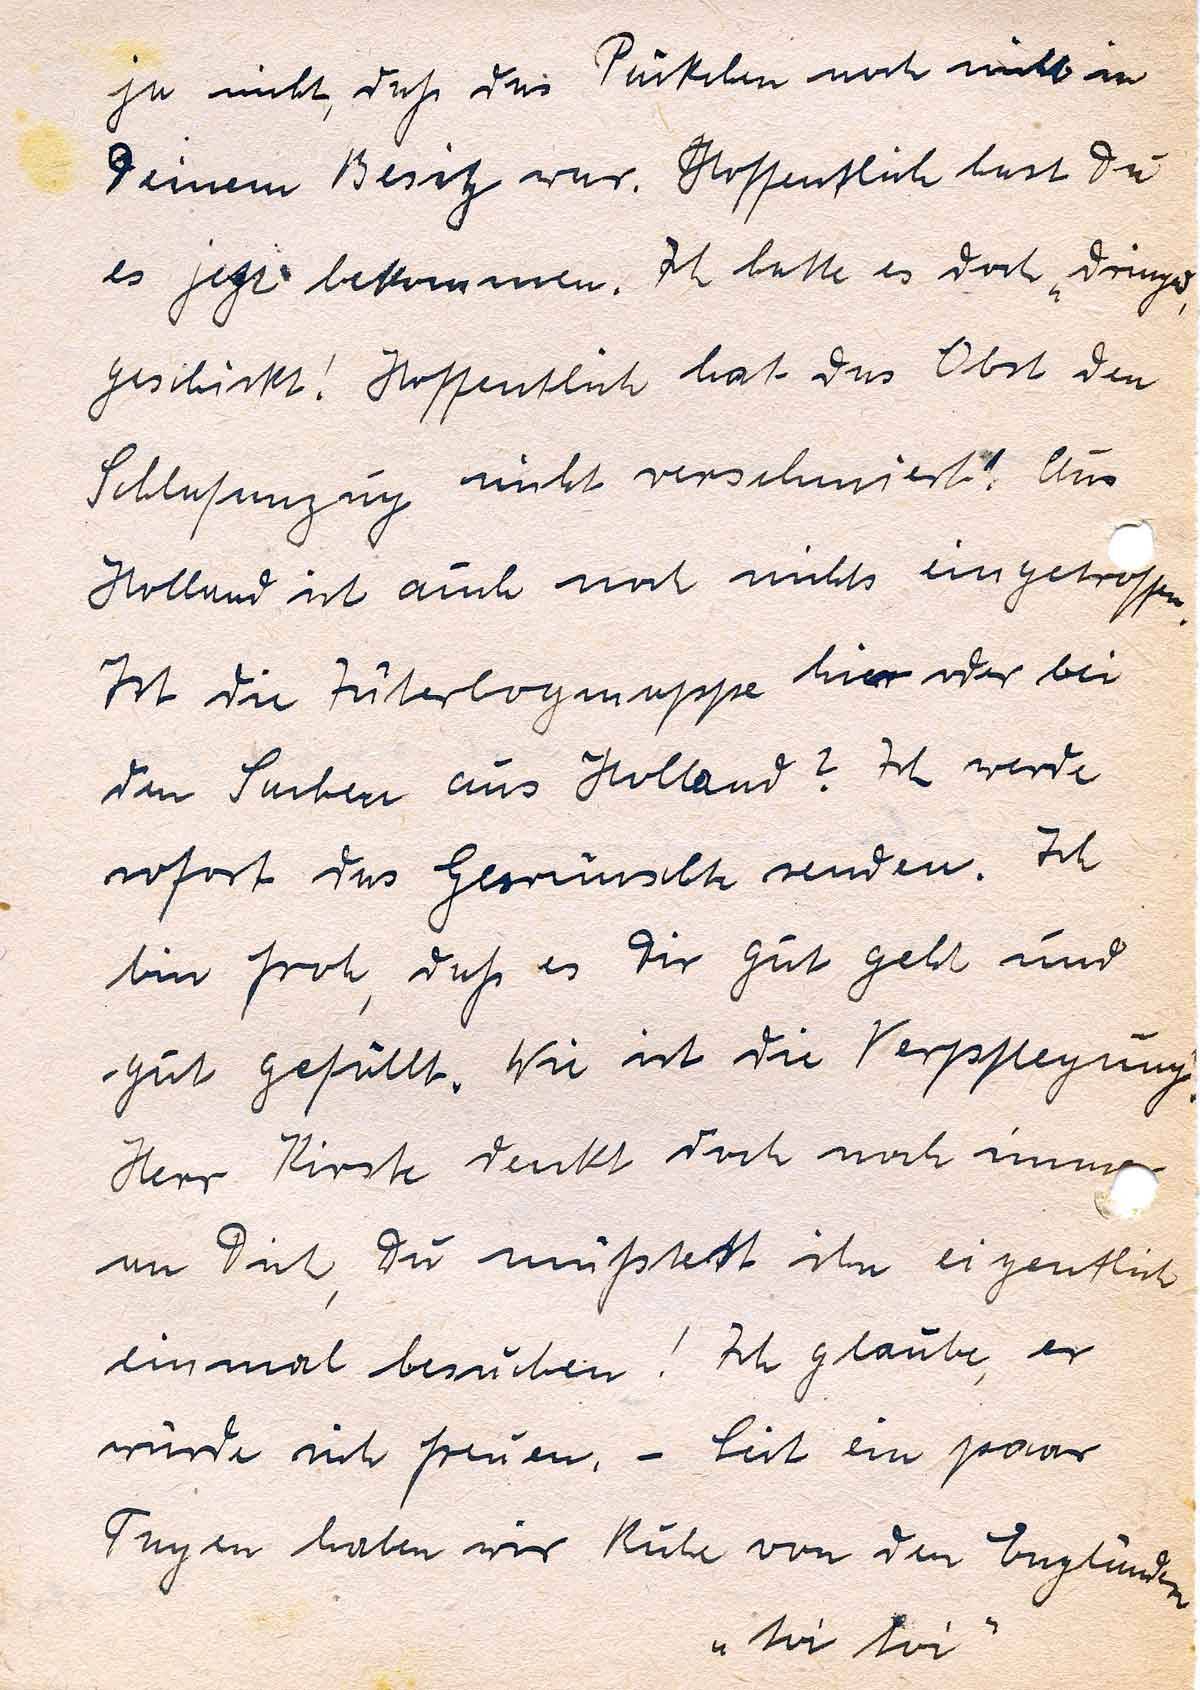 ja nicht, daß das Päckchen noch nicht in
Deinem Besitz war. Hoffentlich hast Du
es jetzt bekommen. Ich hatte es doch „dringd"
geschickt! Hoffentlich hat das Obst den
Schlafanzug nicht verschmiert! Aus
Holland ist auch noch nichts eingetroffen.
Ist die Jüterbogmappe hier oder bei
den Sachen aus Holland? Ich werde
sofort das Gewünschte senden. Ich
bin froh, daß es Dir gut geht und
gut gefällt. Wie ist die Verpflegung?
Herr Kirste denkt doch noch immer
an Dich, Du müßtest ihn eigentlich
einmal besuchen! Ich glaube, er
würde sich freuen. – Seit ein paar
Tagen haben wir Ruhe von den Engländern
„toi toi"